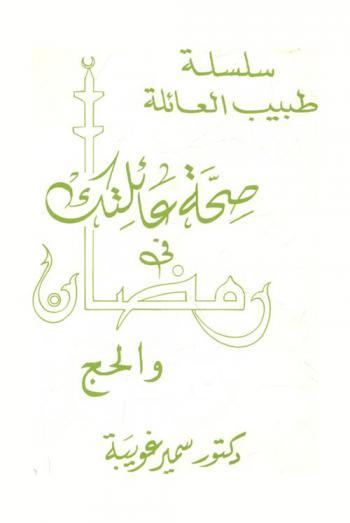 سلسلة
طبيب العائلة
صحة عائلتك
في
رمضان
والحج
دكتور سمير غويبة